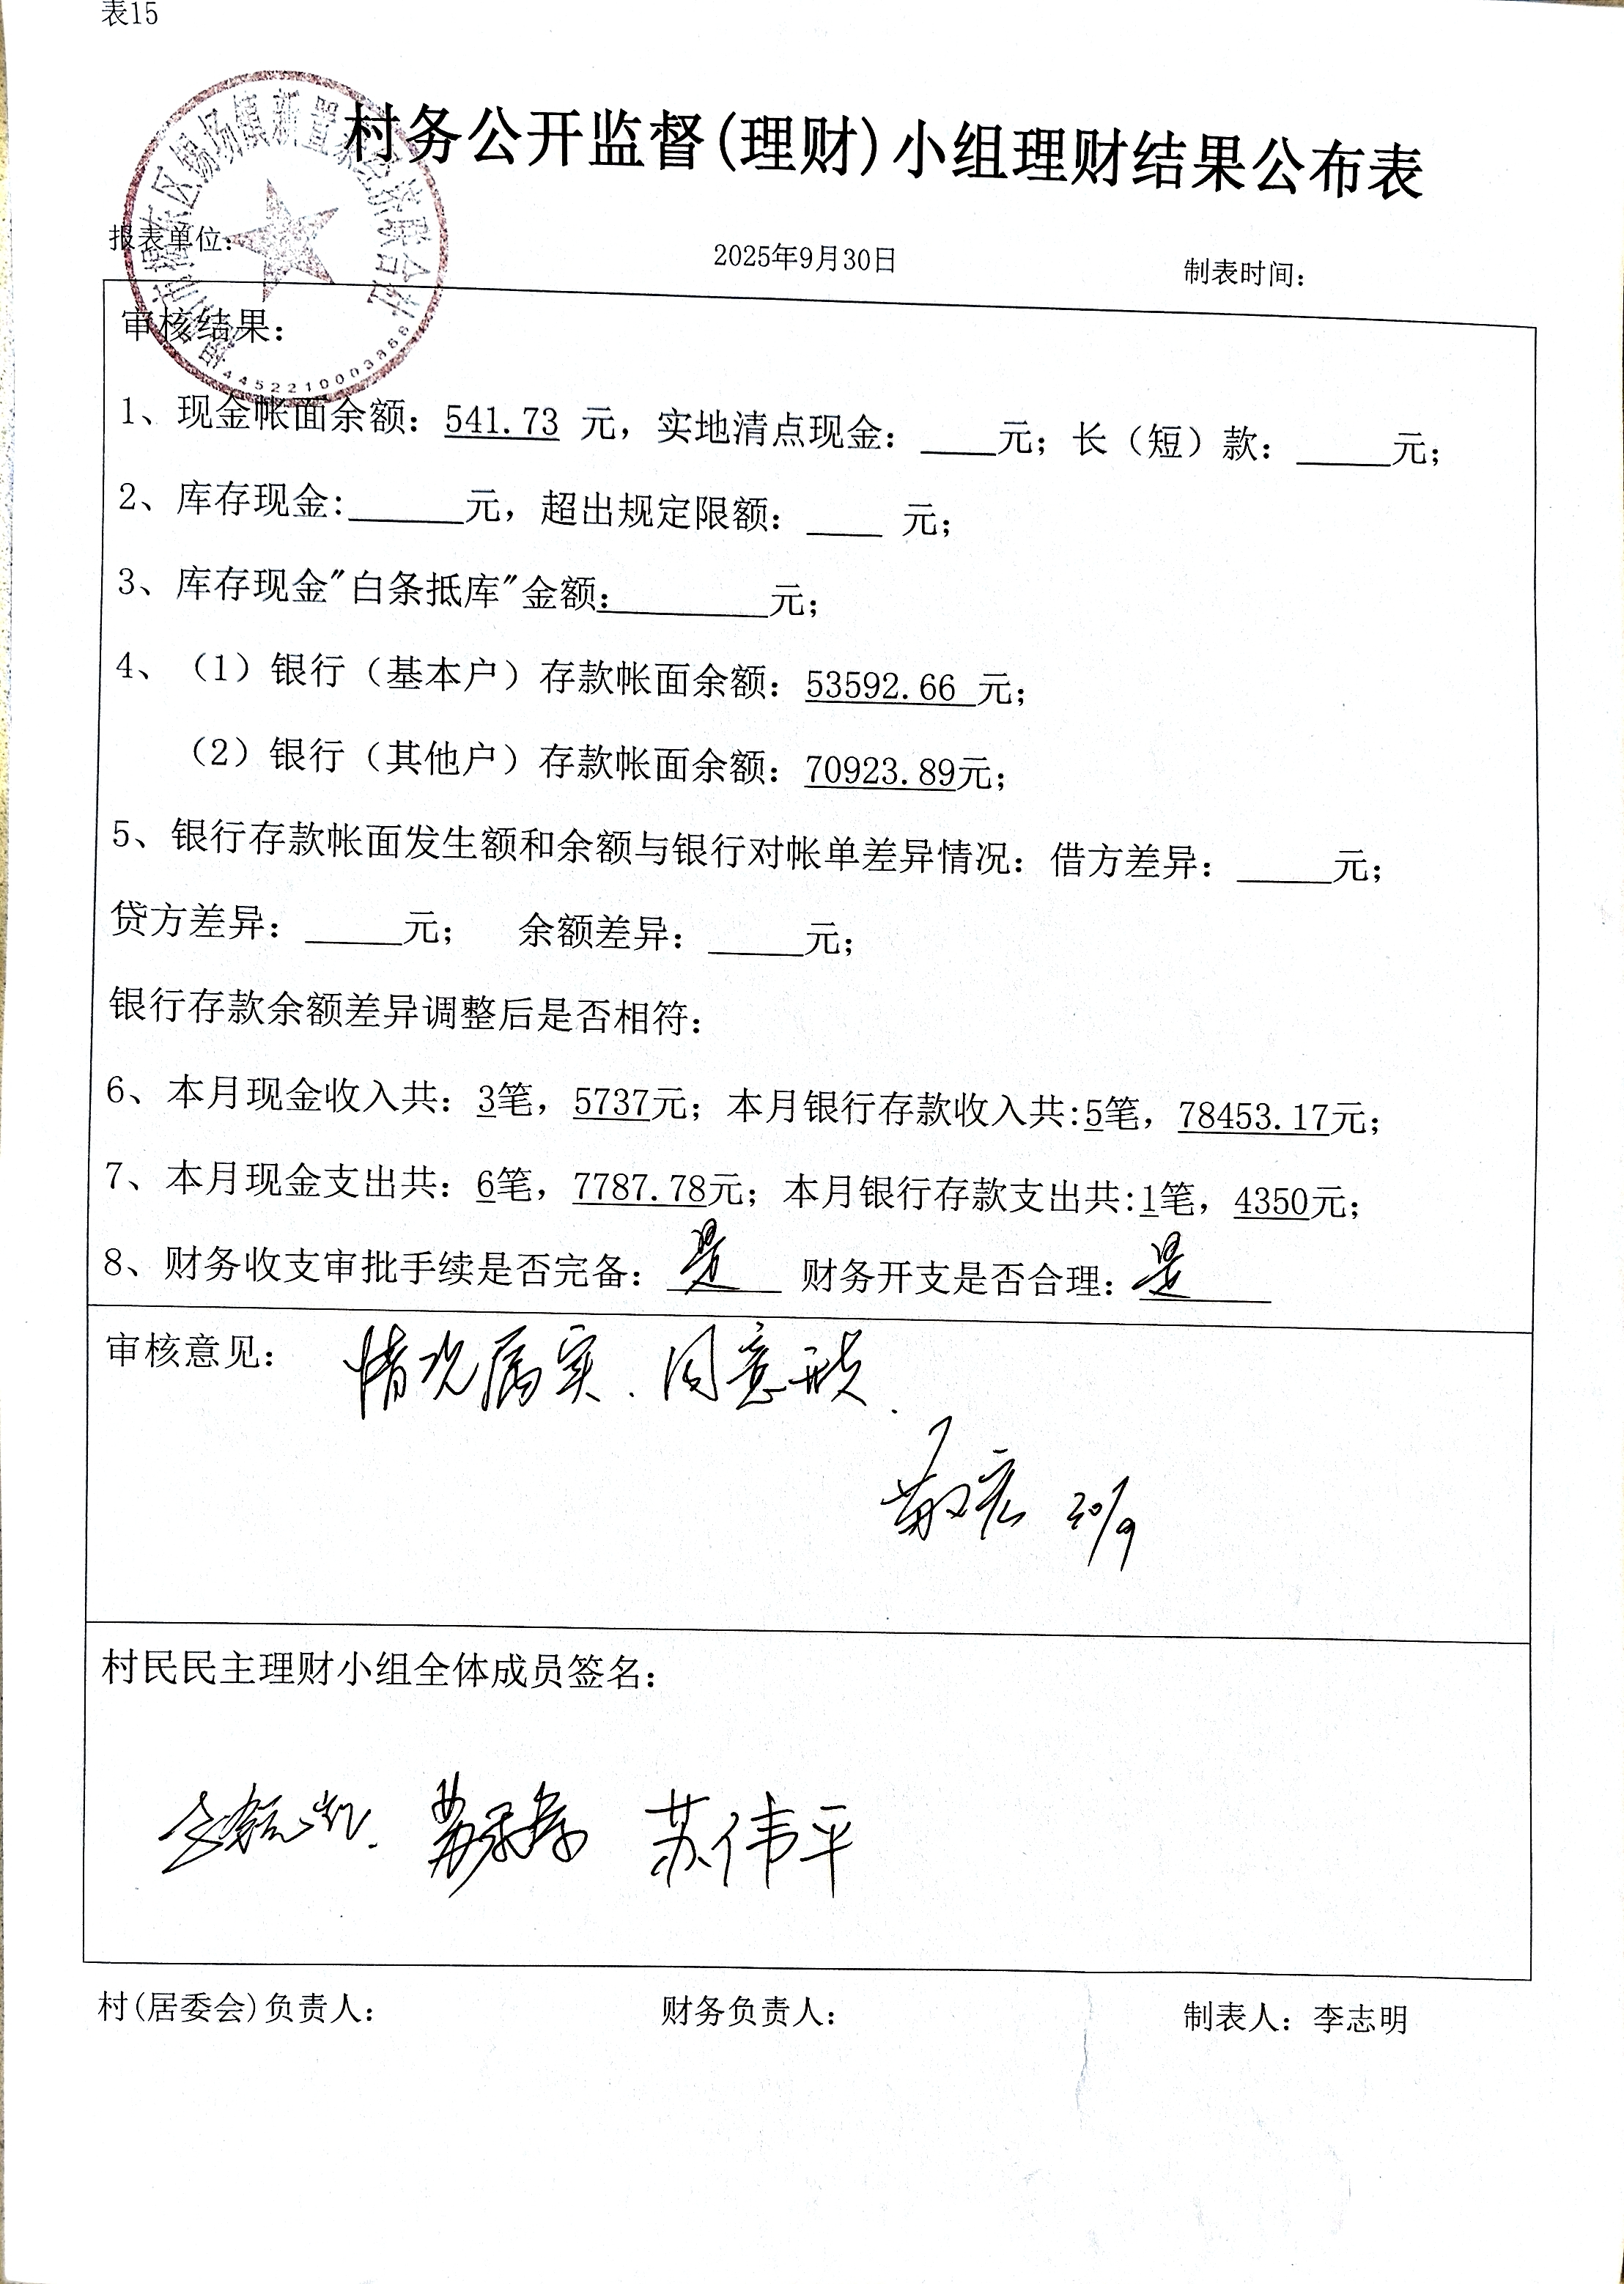 表15
村务公开监督(理财)小组理财结果公布表
报表单位: 2025年9月30日 制表时间:
审核结果:
4452210003868
1、现金帐面余额: 541.73 元, 实地清点现金: ____元; 长（短）款: _____元;
2、库存现金:______元, 超出规定限额: ____ 元;
3、库存现金"白条抵库"金额:________元;
4、（1）银行（基本户）存款帐面余额: 53592.66 元;
（2）银行（其他户）存款帐面余额: 70923.89元;
5、银行存款帐面发生额和余额与银行对帐单差异情况: 借方差异: _____元;
贷方差异: _____元; 余额差异: _____元;
银行存款余额差异调整后是否相符:
6、本月现金收入共: 3笔, 5737元; 本月银行存款收入共:5笔, 78453.17元;
7、本月现金支出共: 6笔, 7787.78元; 本月银行存款支出共:1笔, 4350元;
8、财务收支审批手续是否完备: 是 财务开支是否合理: 是
审核意见: 情况属实.同意
30/9
村民民主理财小组全体成员签名:
苏伟平
村(居委会)负责人: 财务负责人: 制表人: 李志明